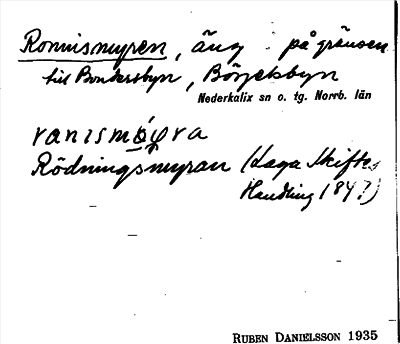 Ronnismyren, äng på gränsen
till Bondersbyn, Börjelsbyn
Nederkalix sn o. tg. Norrb. län
Rödningsmyran (Laga Skiftes
Handling 184?)
RUBEN DANIELSSON 1935